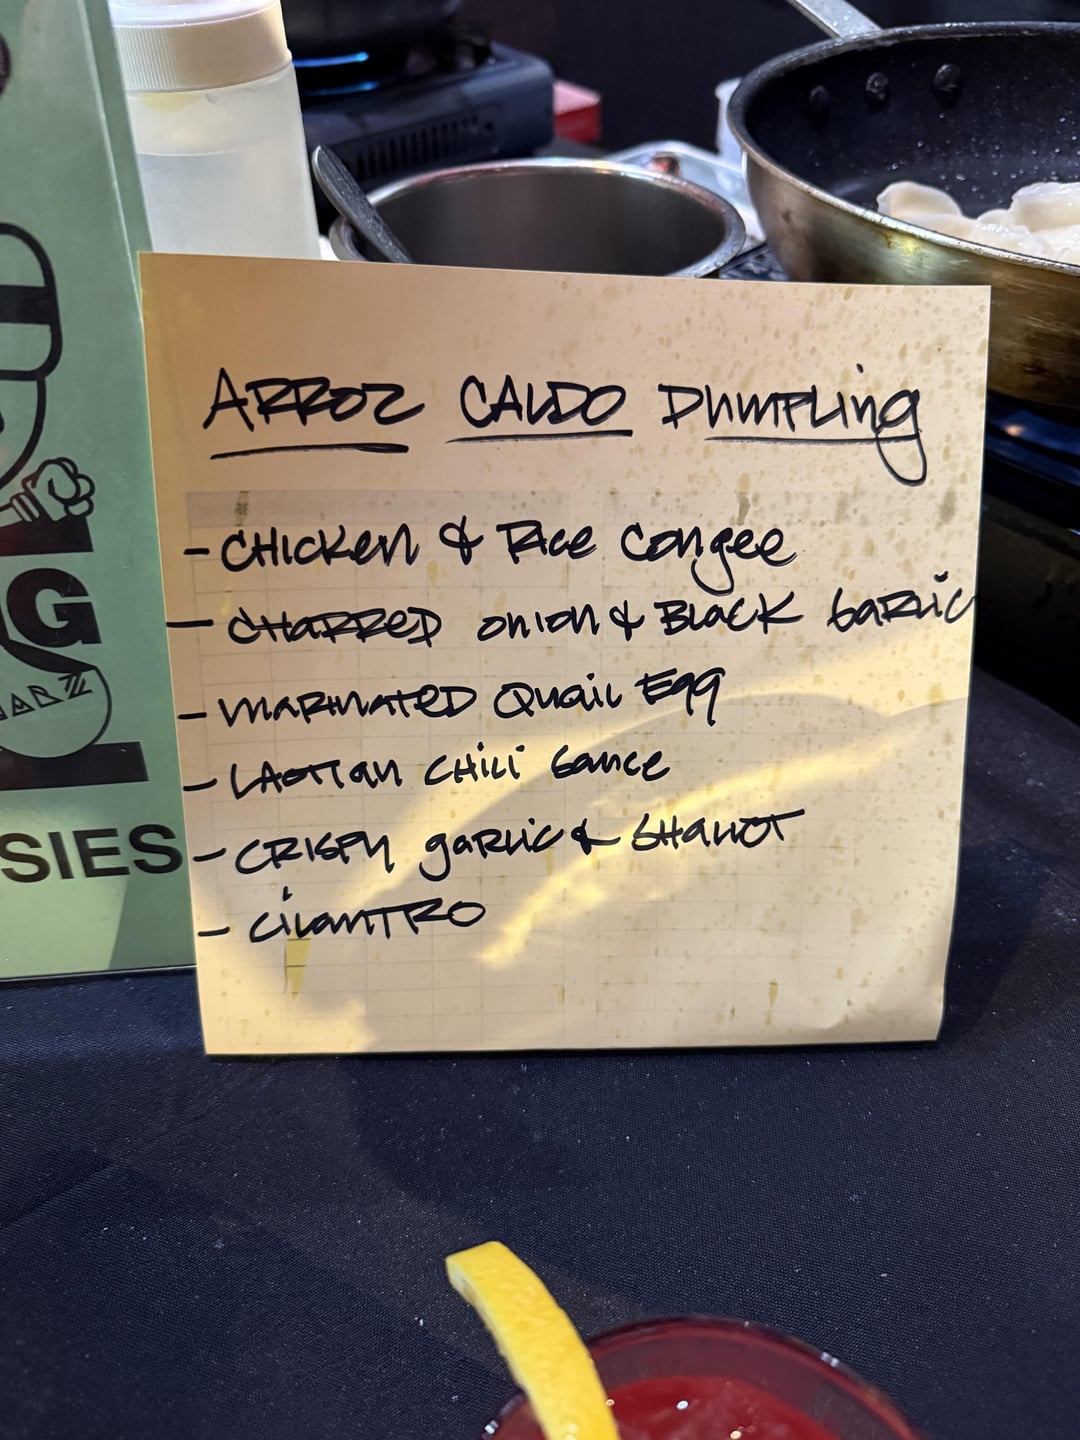 ARROZ CALDO DUMPLing
- CHICKEN & RICE Congee
- CHARRED Onion & BLACK GARLIC
- MARINATED QUAIL Egg
- LAOTIAN CHILI SAUCE
- CRISPY gARLIC & SHALLOT
- CiLANTRO
G
SIES